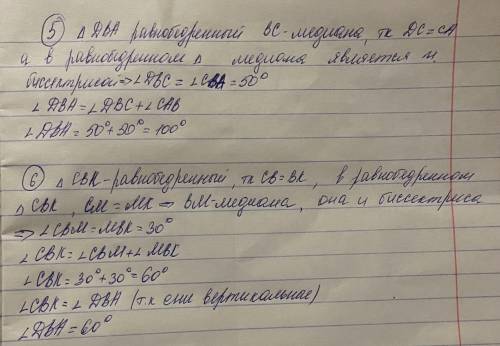 ⑤ △ DBA равнобедренный BC-медиана, тк DC=CA
а в равнобедренном △ медиана является и
биссектрисой ⇒ ∠DBC = ∠CBA = 50°
∠DBA = ∠DBC + ∠CAB
∠DBA = 50° + 50° = 100°
⑥ △ CBK - равнобедренный, тк CB = BK, в равнобедренном
△ CBK, CM = MK ⇒ BM-медиана, она и биссектриса
⇒ ∠CBM = MBK = 30°
∠CBK = ∠CBM + ∠MBK
∠CBK = 30° + 30° = 60°
∠CBK = ∠ DBA (т.к они вертикальные)
∠DBA = 60°